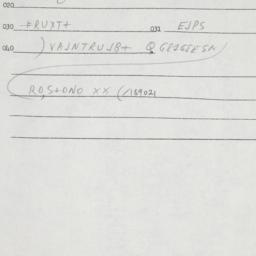 020
030 #RUXT+ 031 EJPS
040 )VAJNTRUJB+ QGEZGEESN/
RO,S+ONO XX (/189021